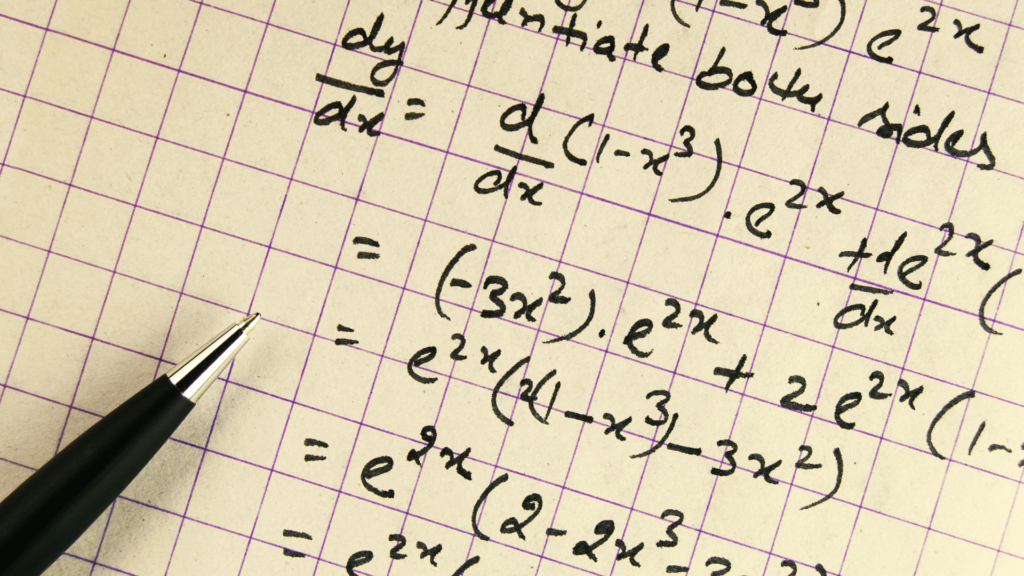 (1-x³) e^2x
both sides
dy/dx = d/dx (1-x³) . e^2x + d/dx e^2x (
= (-3x²) . e^2x + 2 e^2x (1-
= e^2x (2(1-x³) - 3x²)
= e^2x (2 - 2x³ -
= e^2x (